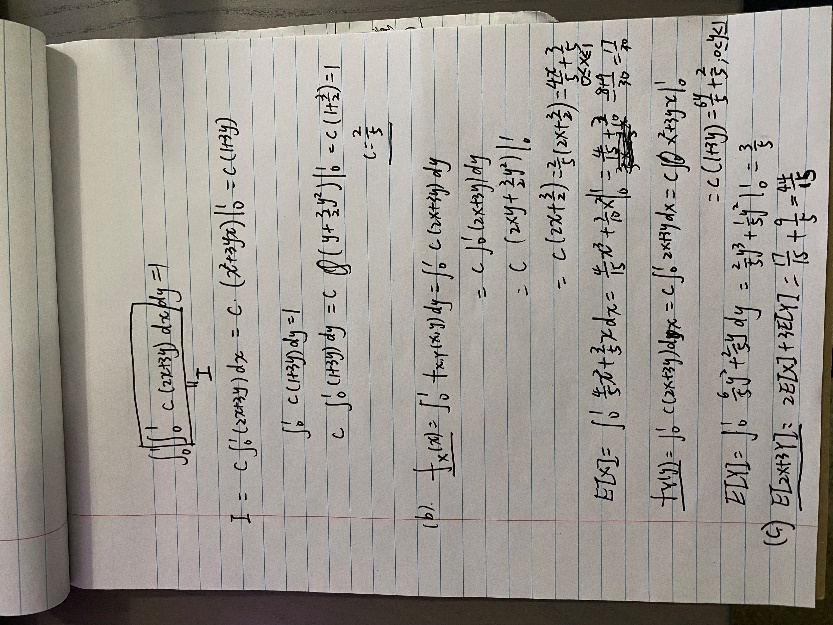 ∫₀¹∫₀¹ c(2x+3y) dx dy = 1
" I
I = c∫₀¹(2x+3y) dx = c·(x²+3yx)|₀¹ = c(1+3y)
∫₀¹ c(1+3y) dy = 1
c ∫₀¹ (1+3y) dy = c (y+3/2y²)|₀¹ = c(1+3/2) = 1
c = 2/5
(b). f_X(x) = ∫₀¹ f_{X,Y}(x,y) dy = ∫₀¹ c(2x+3y) dy
= c ∫₀¹ (2x+3y) dy
= c (2xy+3/2y²)|₀¹
= c (2x+3/2) = 2/5(2x+3/2) = 4x/5 + 3/5
0≤x≤1
E[X] = ∫₀¹ 4/5x²+3/5x dx = 4/15x³+3/10x²|₀¹ = 4/15+3/10 = 8+9/30 = 17/30
f_Y(y) = ∫₀¹ c(2x+3y) dx = c∫₀¹ 2x+3y dx = c x²+3yx|₀¹
= c(1+3y) = 6y/5 + 2/5, 0≤y≤1
E[Y] = ∫₀¹ 6/5y²+2/5y dy = 2/5y³+1/5y²|₀¹ = 3/5
(c) E[2X+3Y] = 2E[X]+3E[Y] = 17/15 + 9/5 = 44/15